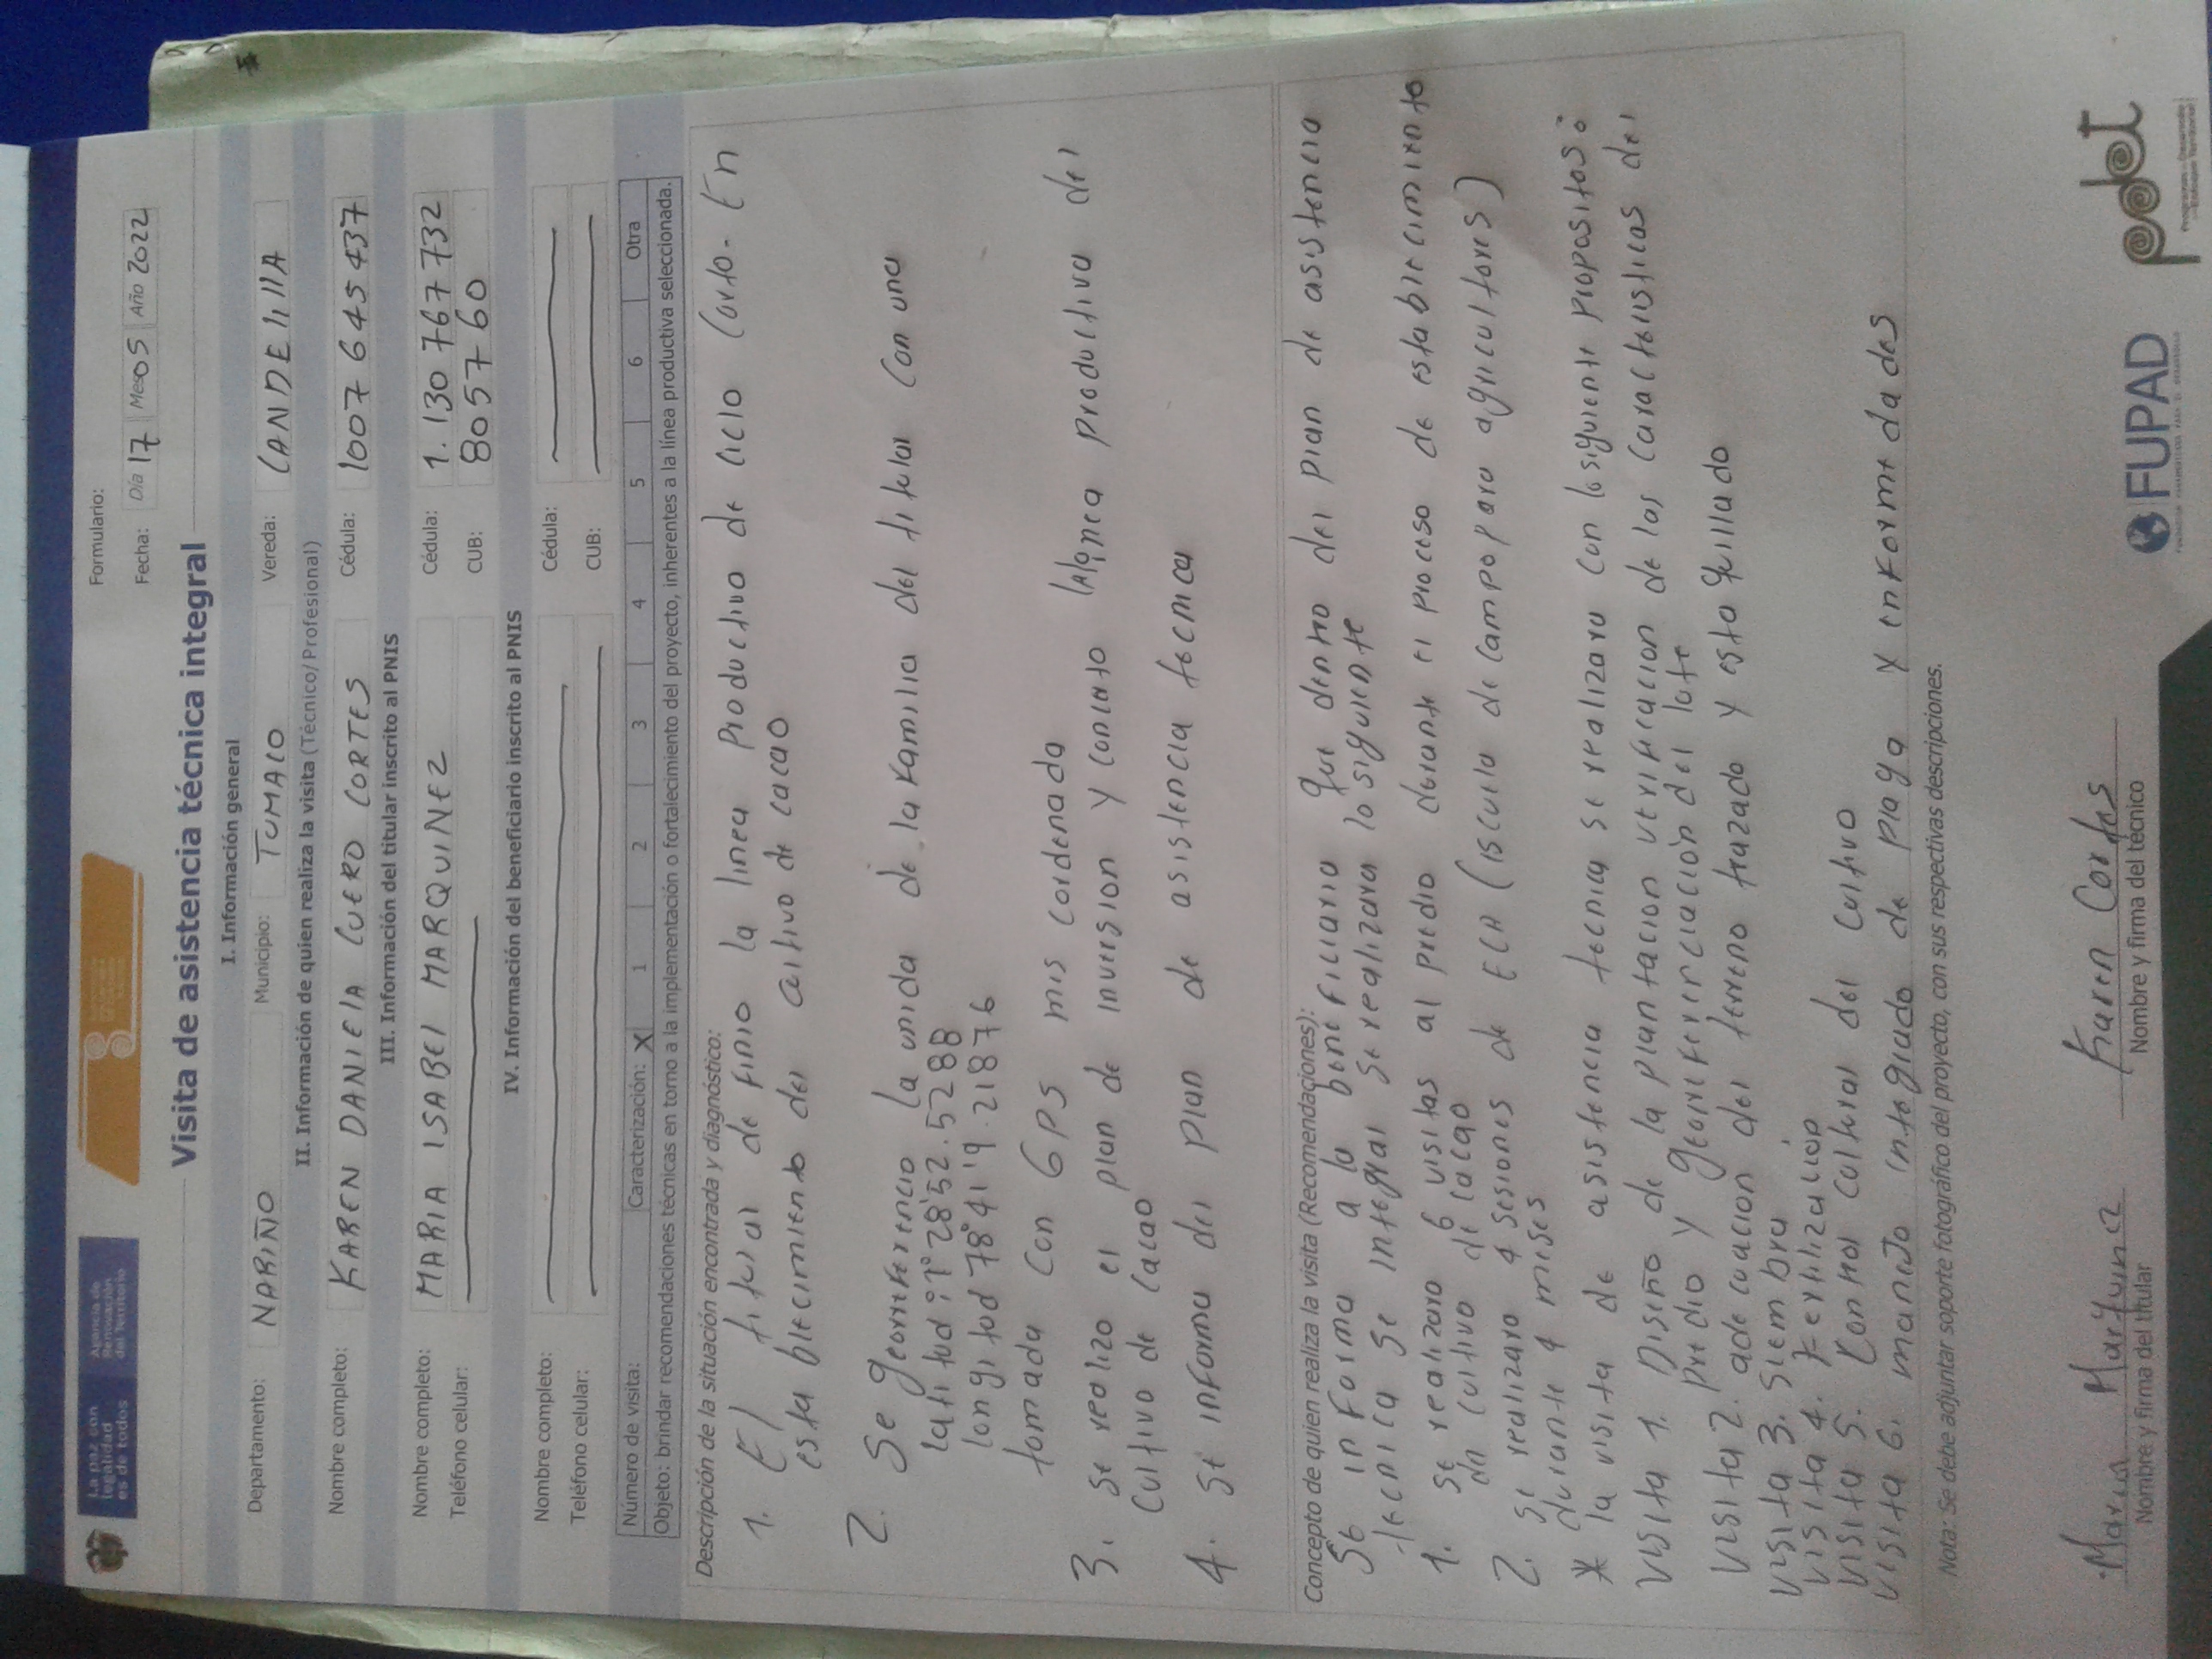 La paz con
legalidad
es de todos
Agencia de
Renovación
del Territorio
Formulario:
Fecha: Día 17 Mes 05 Año 2022
Visita de asistencia técnica integral
I. Información general
Departamento: NARIÑO Municipio: TUMACO Vereda: CANDElillA
II. Información de quien realiza la visita (Técnico/ Profesional)
Nombre completo: KAREN DANIElA CUERO CORTES Cédula: 1007 645 437
III. Información del titular inscrito al PNIS
Nombre completo: MARIA ISABEl MARQUINEZ Cédula: 1.130 767 732
Teléfono celular: CUB: 8057760
IV. Información del beneficiario inscrito al PNIS
Nombre completo: Cédula:
Teléfono celular: CUB:
Número de visita: Caracterización: X 1 2 3 4 5 6 Otra
Objeto: brindar recomendaciones técnicas en torno a la implementación o fortalecimiento del proyecto, inherentes a la línea productiva seleccionada.
Descripción de la situación encontrada y diagnóstico:
1. El titular de finio la linea productivo de ciclo Corto. En
establecimiento del cultivo de cacao
2. Se georreferencio la unida de la familia del titular con una
latitud: 1° 28' 52.5288
longitud 78° 41' 19.21876
tomada con GPS mis cordenada
3. se realizo el plan de inversion y conclato la linea productiva del
cultivo de cacao
4. se informa del plan de asistencia tecnica
Concepto de quien realiza la visita (Recomendaciones):
Se informa a la beneficiaria que dentro del plan de asistencia
tecnica se integral se realizara lo siguiente
1. se realizaro 6 visitas al predio durante el proceso de establecimiento
del cultivo de cacao
2. se realizaro 4 sesiones de ECA (iscuela de campo para agricultores)
durante 4 meses
* la visita de asistencia tecnica se realizara con lo siguiente propositos:
Visita 1. Diseño de la plantacion verificacion de las caracteristicas del
predio y georreferenciación del lote
Visita 2. adecuacion del terreno trazado y estaquillado
Visita 3. Siembra
Visita 4. Fertilizacion
Visita 5. Control cultural del cultivo
Visita 6. manejo integrado de plaga y enformedades
Nota: Se debe adjuntar soporte fotográfico del proyecto, con sus respectivas descripciones.
Maria Marquinez Karen Cortes
Nombre y firma del titular Nombre y firma del técnico
FUPAD
pdet